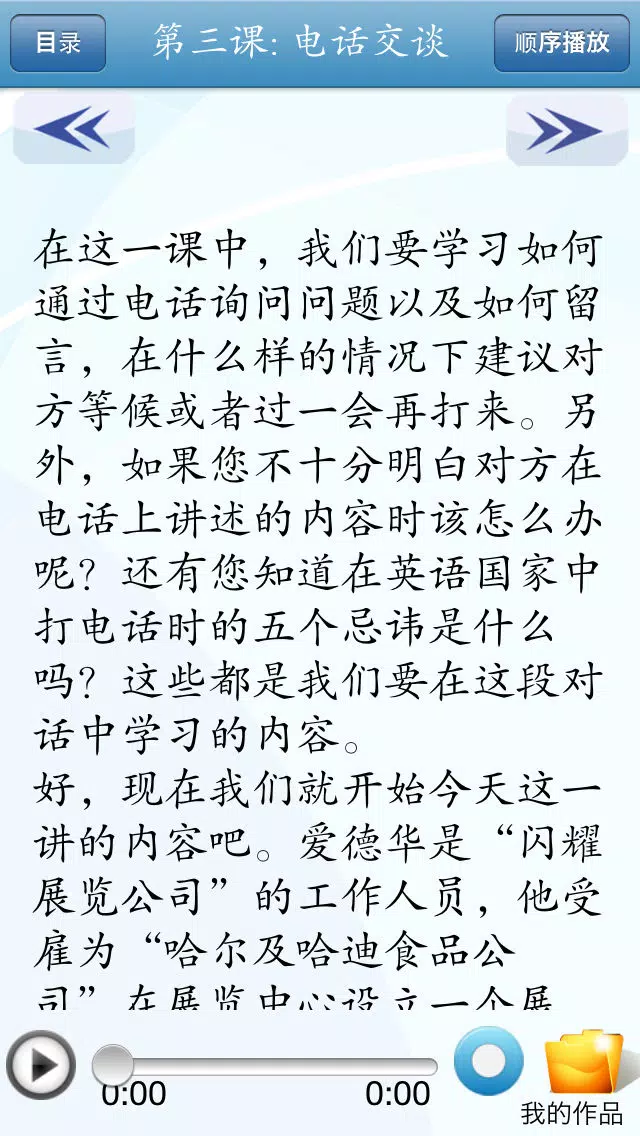 目录 第三课: 电话交谈 顺序播放
在这一课中，我们要学习如何
通过电话询问问题以及如何留
言，在什么样的情况下建议对
方等候或者过一会再打来。另
外，如果您不十分明白对方在
电话上讲述的内容时该怎么办
呢？还有您知道在英语国家中
打电话时的五个忌讳是什么
吗？这些都是我们要在这段对
话中学习的内容。
好，现在我们就开始今天这一
讲的内容吧。爱德华是“闪耀
展览公司”的工作人员，他受
雇为“哈尔及哈迪食品公
司”在展览中心设立一个展
0:00 0:00
我的作品